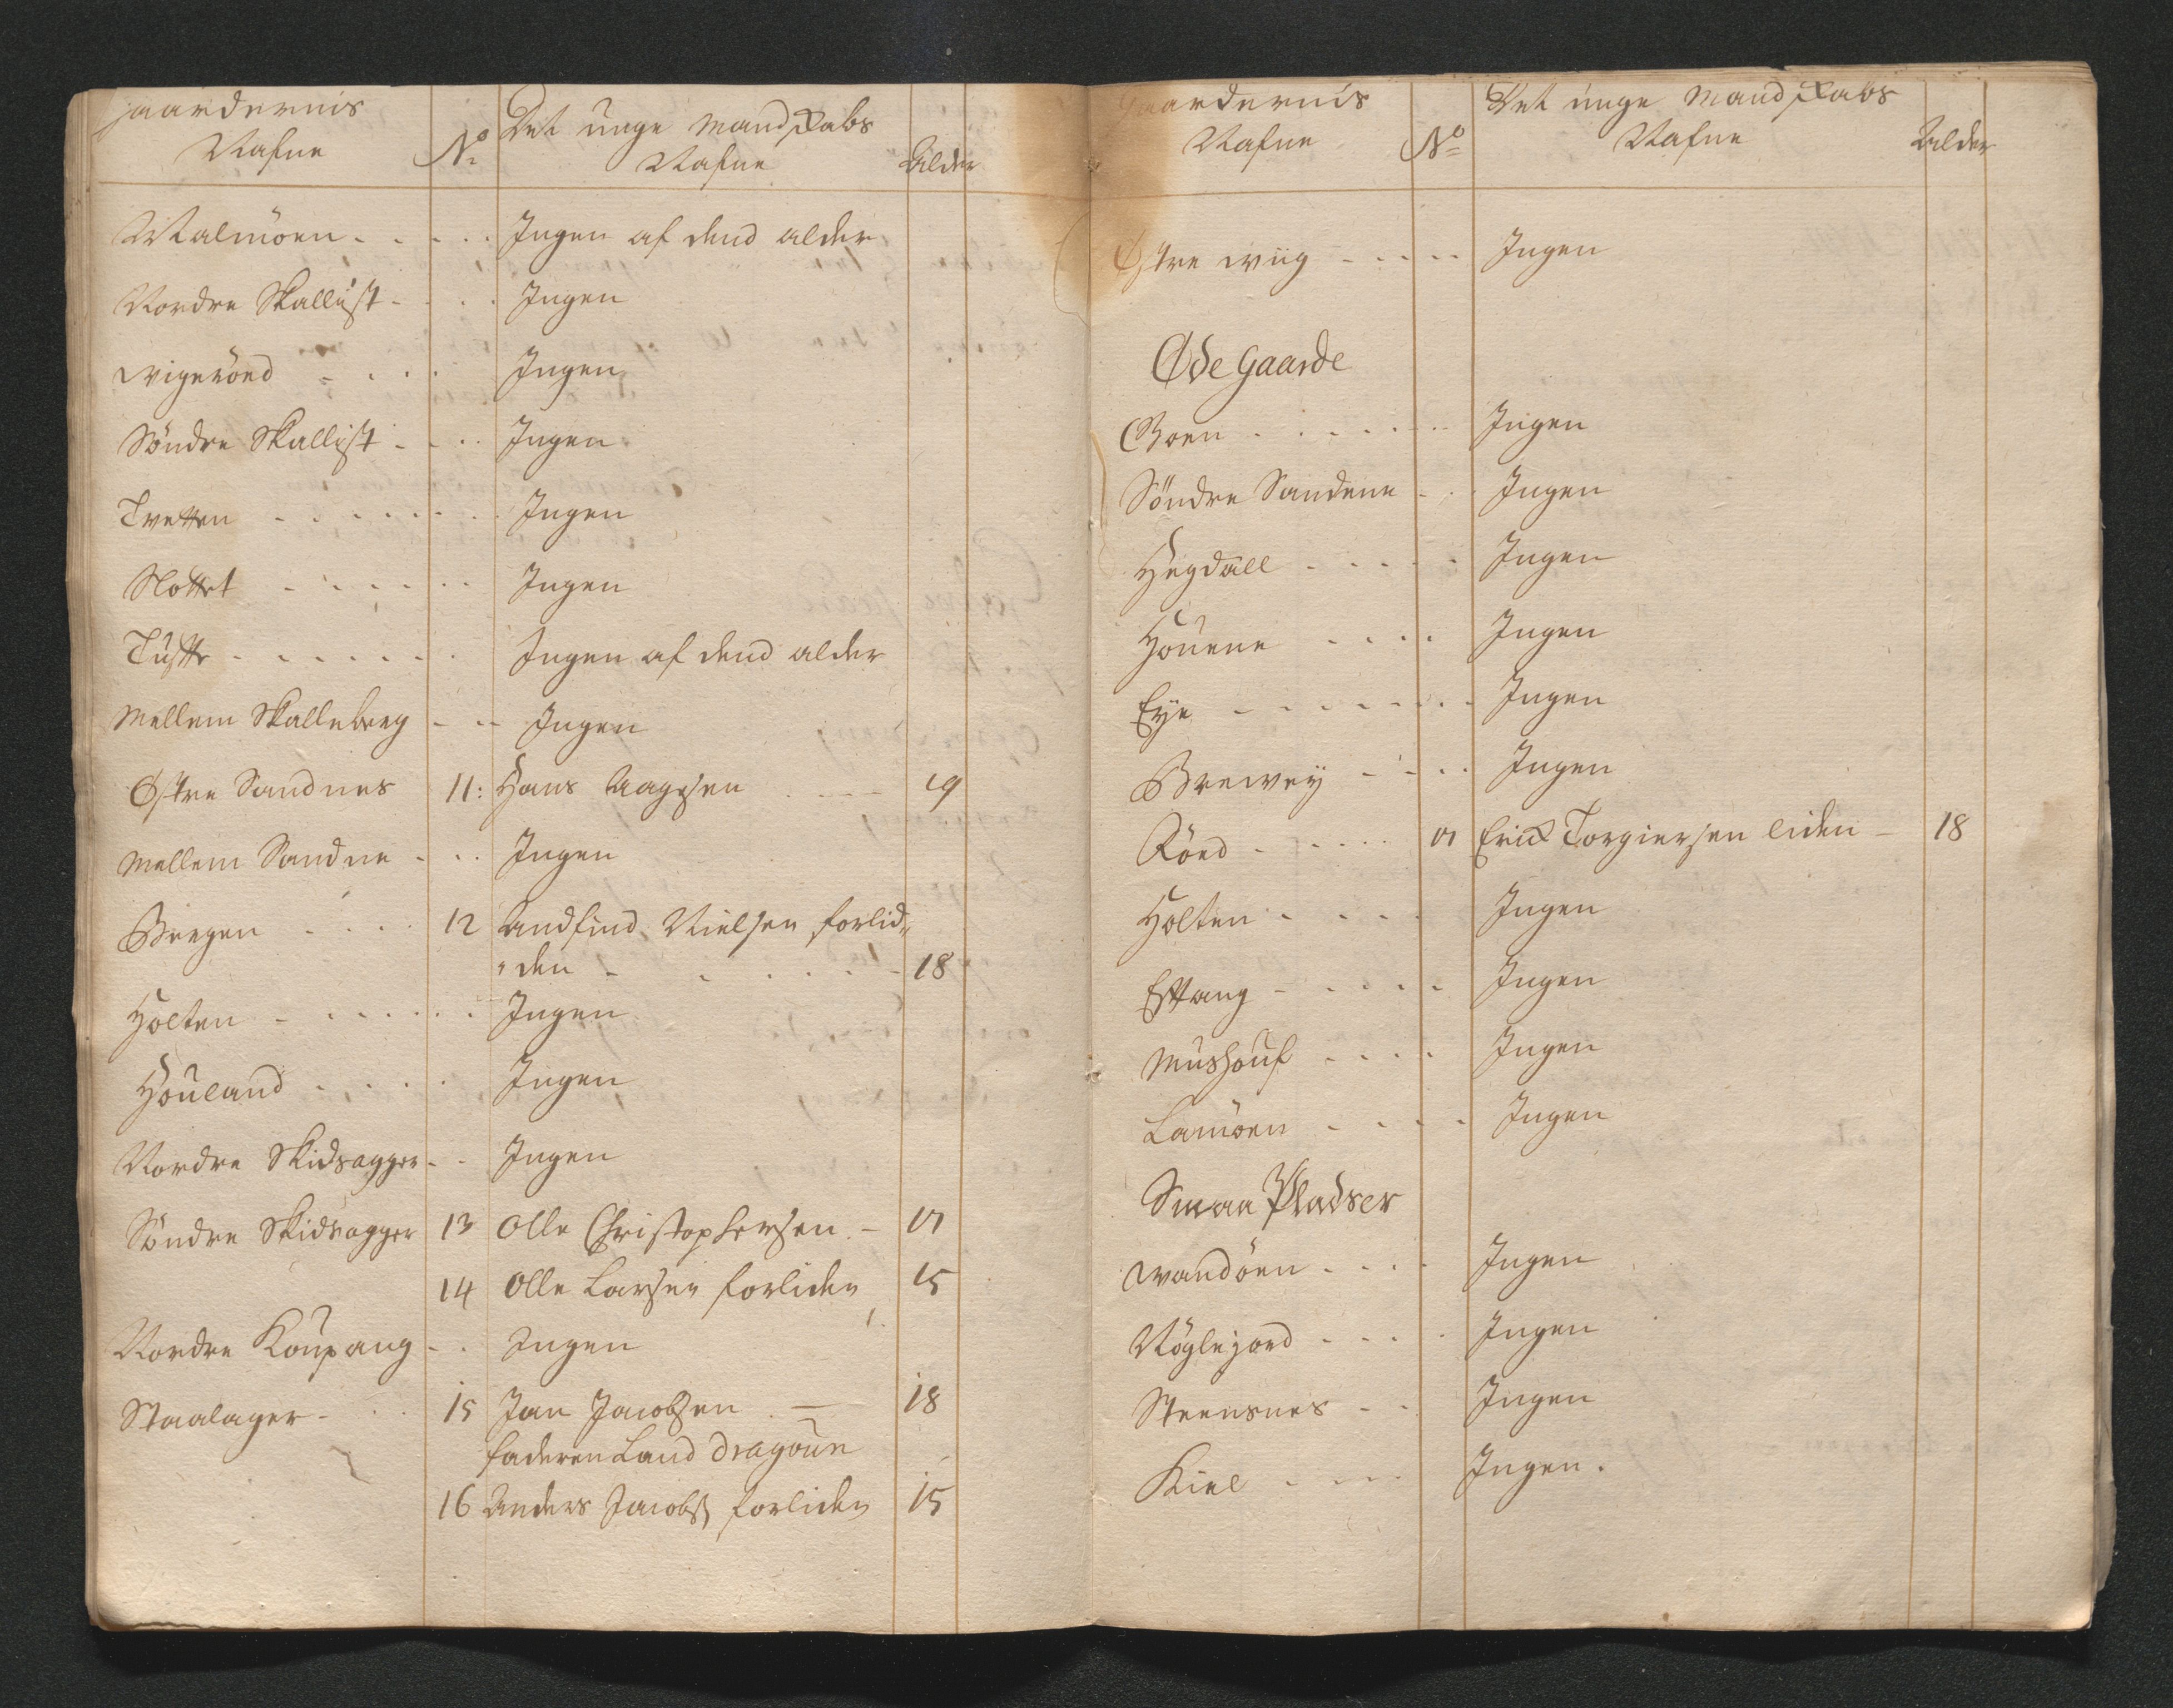 Gaardernis
Nafne
No
Det unge Mandskabs
Nafne
Alder
Walmöen - - - - - Ingen af dend alder
Nordre Skallist - - - - Ingen
wigerönd - - - - Ingen
Söndre Skallist - - - Ingen
Tvetten - - - - - - Ingen
Slottet - - - - - - Ingen
Tufte - - - - - - Ingen af dend alder
Mellem Skalleberg - - - Ingen
Østre Sandnes 11: Hans Aagesen - - - 19
Mellem Sandne - - - Ingen
Bregen - - - - 12 Andfind Nielsen forlid„
„den - - - - - - 18
Holten - - - - - - Ingen
Houland - - - - Ingen
Nordre Skidsagger - - Ingen
Söndre Skidsagger 13 Olle Christophersen - 17
14 Olle Larsen forliden 15
Nordre Koupang - - Ingen
Staalager - - - 15 Jan Jacobsen - 18
faderen Land Dragoun
16 Anders Jacobs forliden 15
Gaardernis
Nafne
No
Det unge Mandskabs
Nafne
Alder
Østre wiig - - - - - Ingen
Øde Gaarde
Boen - - - - - - Ingen
Söndre Sandene - - Ingen
Hegdall - - - - - Ingen
Houene - - - - Ingen
Eye - - - - - - - Ingen
Brewey - - - - Ingen
Rönd - - - - - 17 Erick Torgiersen liden - 18
Holten - - - - Ingen
Estang - - - - - Ingen
Mushouf - - - - Ingen
Lamöen - - - - Ingen
Smaa Pladser
wandöen - - - - Ingen
Nöglejord - - - - Ingen
Steensnes - - Ingen
Kiel - - - - Ingen.